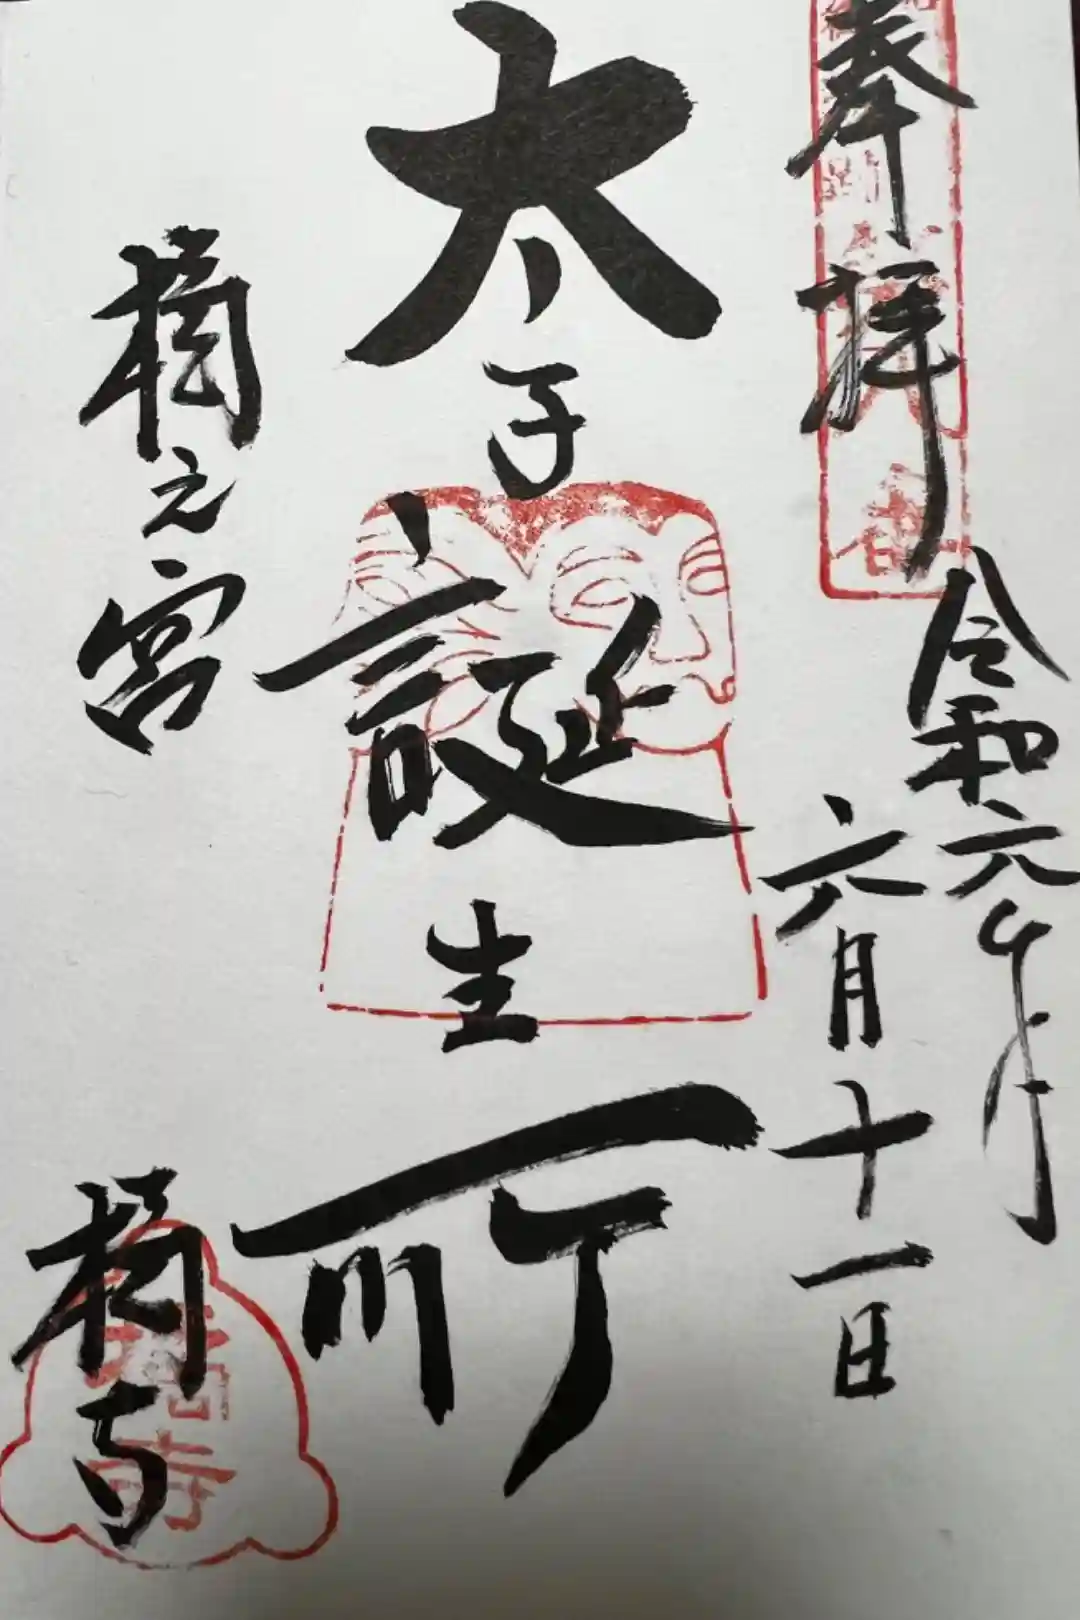 奉拝
令和元年
六月十一日
太子誕生所
橘之宮
橘寺
橘寺